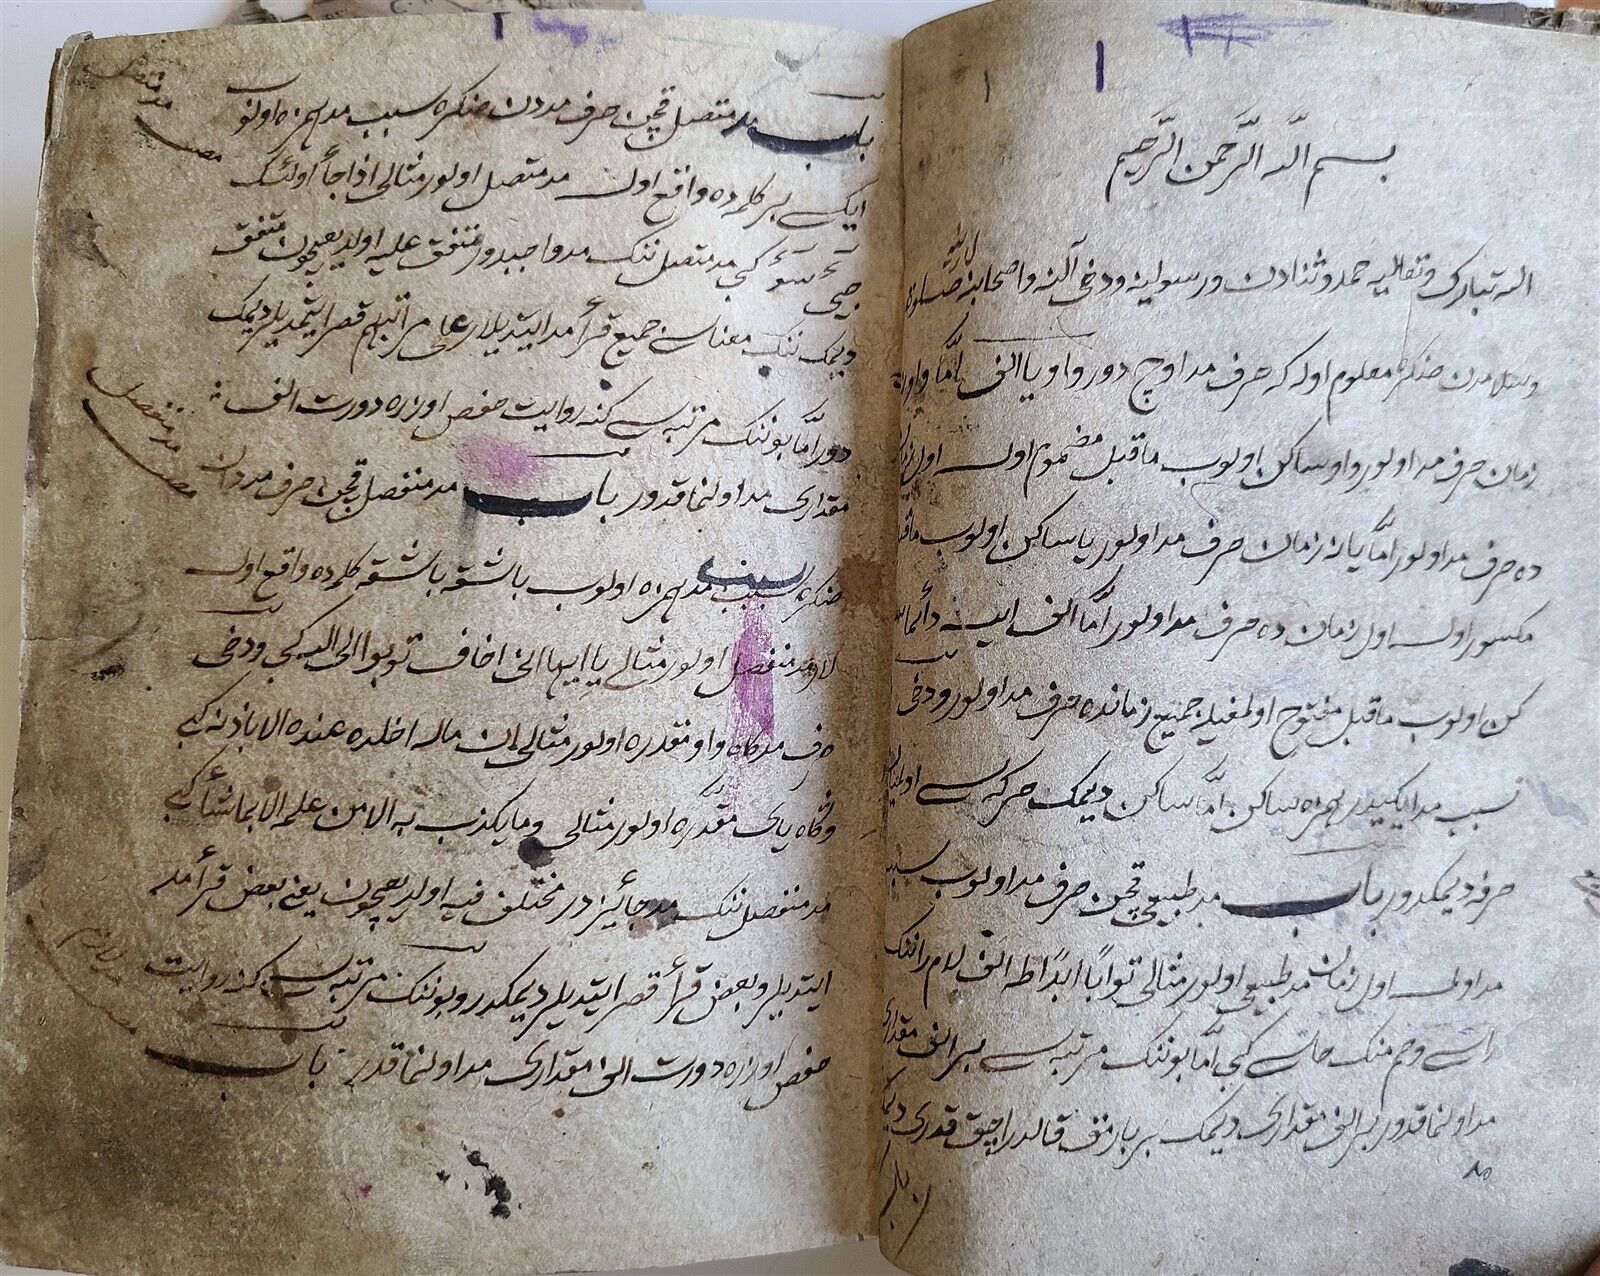 بسم الله الرحمن الرحيم
الله تبارك وتعاليه حمد وثنادن ورسولينه ودخى آلنه واصحابنه صلوة
وسلامدن صكره معلوم اوله كه حرف مد اوچ دور واو يا الف امّا واو نه
زمان حرف مد اولور واو ساكن اولوب ماقبلى مضموم اولسه اول زمان
ده حرف مد اولور امّا يا نه زمان حرف مد اولور يا ساكن اولوب ماقبلى
مكسور اولسه اول زمان ده حرف مد اولور امّا الف ايسه دائما سا
كن اولوب ماقبلى مفتوح اولمغيله جميع زمانده حرف مد اولور ودخى
سبب مد ايكيدر همزه ساكن امّا ساكن ديمك حركه سى اولميان
حرفه ديمكدور باب مد طبيعى قچن حرف مد اولوب سبب
مد اولمسه اول زمان مد طبيعى اولور مثالى توابا ابدًا طه الف لام را ننك
راسى وحم ننك حاسى كبى امّا بوننك مرتبه سى بر الف مقدارى
مد اولنماقدور بر الف مقدارى ديمك بر پارمق قالدراجق قدرى ديمك
باب مد متصل قچن حرف مددن صكره سبب مد همزه اولوب
ايكسى بر كلمه ده واقع اولسه مد متصل اولور مثالى اذا جاء اولئك
جئ سوء كبى مد متصل ننك مد واجبدور متفق عليه اولديغيچون متفق
ديمك ننك معناسى جميع قرّاء مد ايتديلار على مراتبهم قصر ايتمديلر ديمك
دور امّا بوننك مرتبه سى كنه روايت حفص اوزره دورت الف
مقدارى مد اولنماقدور باب مد منفصل قچن حرف مددن
صكره سبب مد همزه اولوب باشقه باشقه كلمه ده واقع اولسه
لار مد منفصل اولور مثالى يا ايها انى اخاف توبوا الى الله كبى ودخى
حرف مد كاه واو مقدره اولور مثالى ان ماله اخلده عنده الا باذنه كبى
وكاه ياى مقدره اولور مثالى وما يكذب به الا من علمه الا بما شاء كبى
مد منفصل ننك مد جائزدر مختلف فيه اولديغيچون يعنى بعض قرّاء مد
ايتديلر وبعض قرّاء قصر ايتديلر ديمكدر وبوننك مرتبه سى كنه روايت
حفص اوزره دورت الف مقدارى مد اولنماقدر باب
مد متصل
مد منفصل
مد لازم